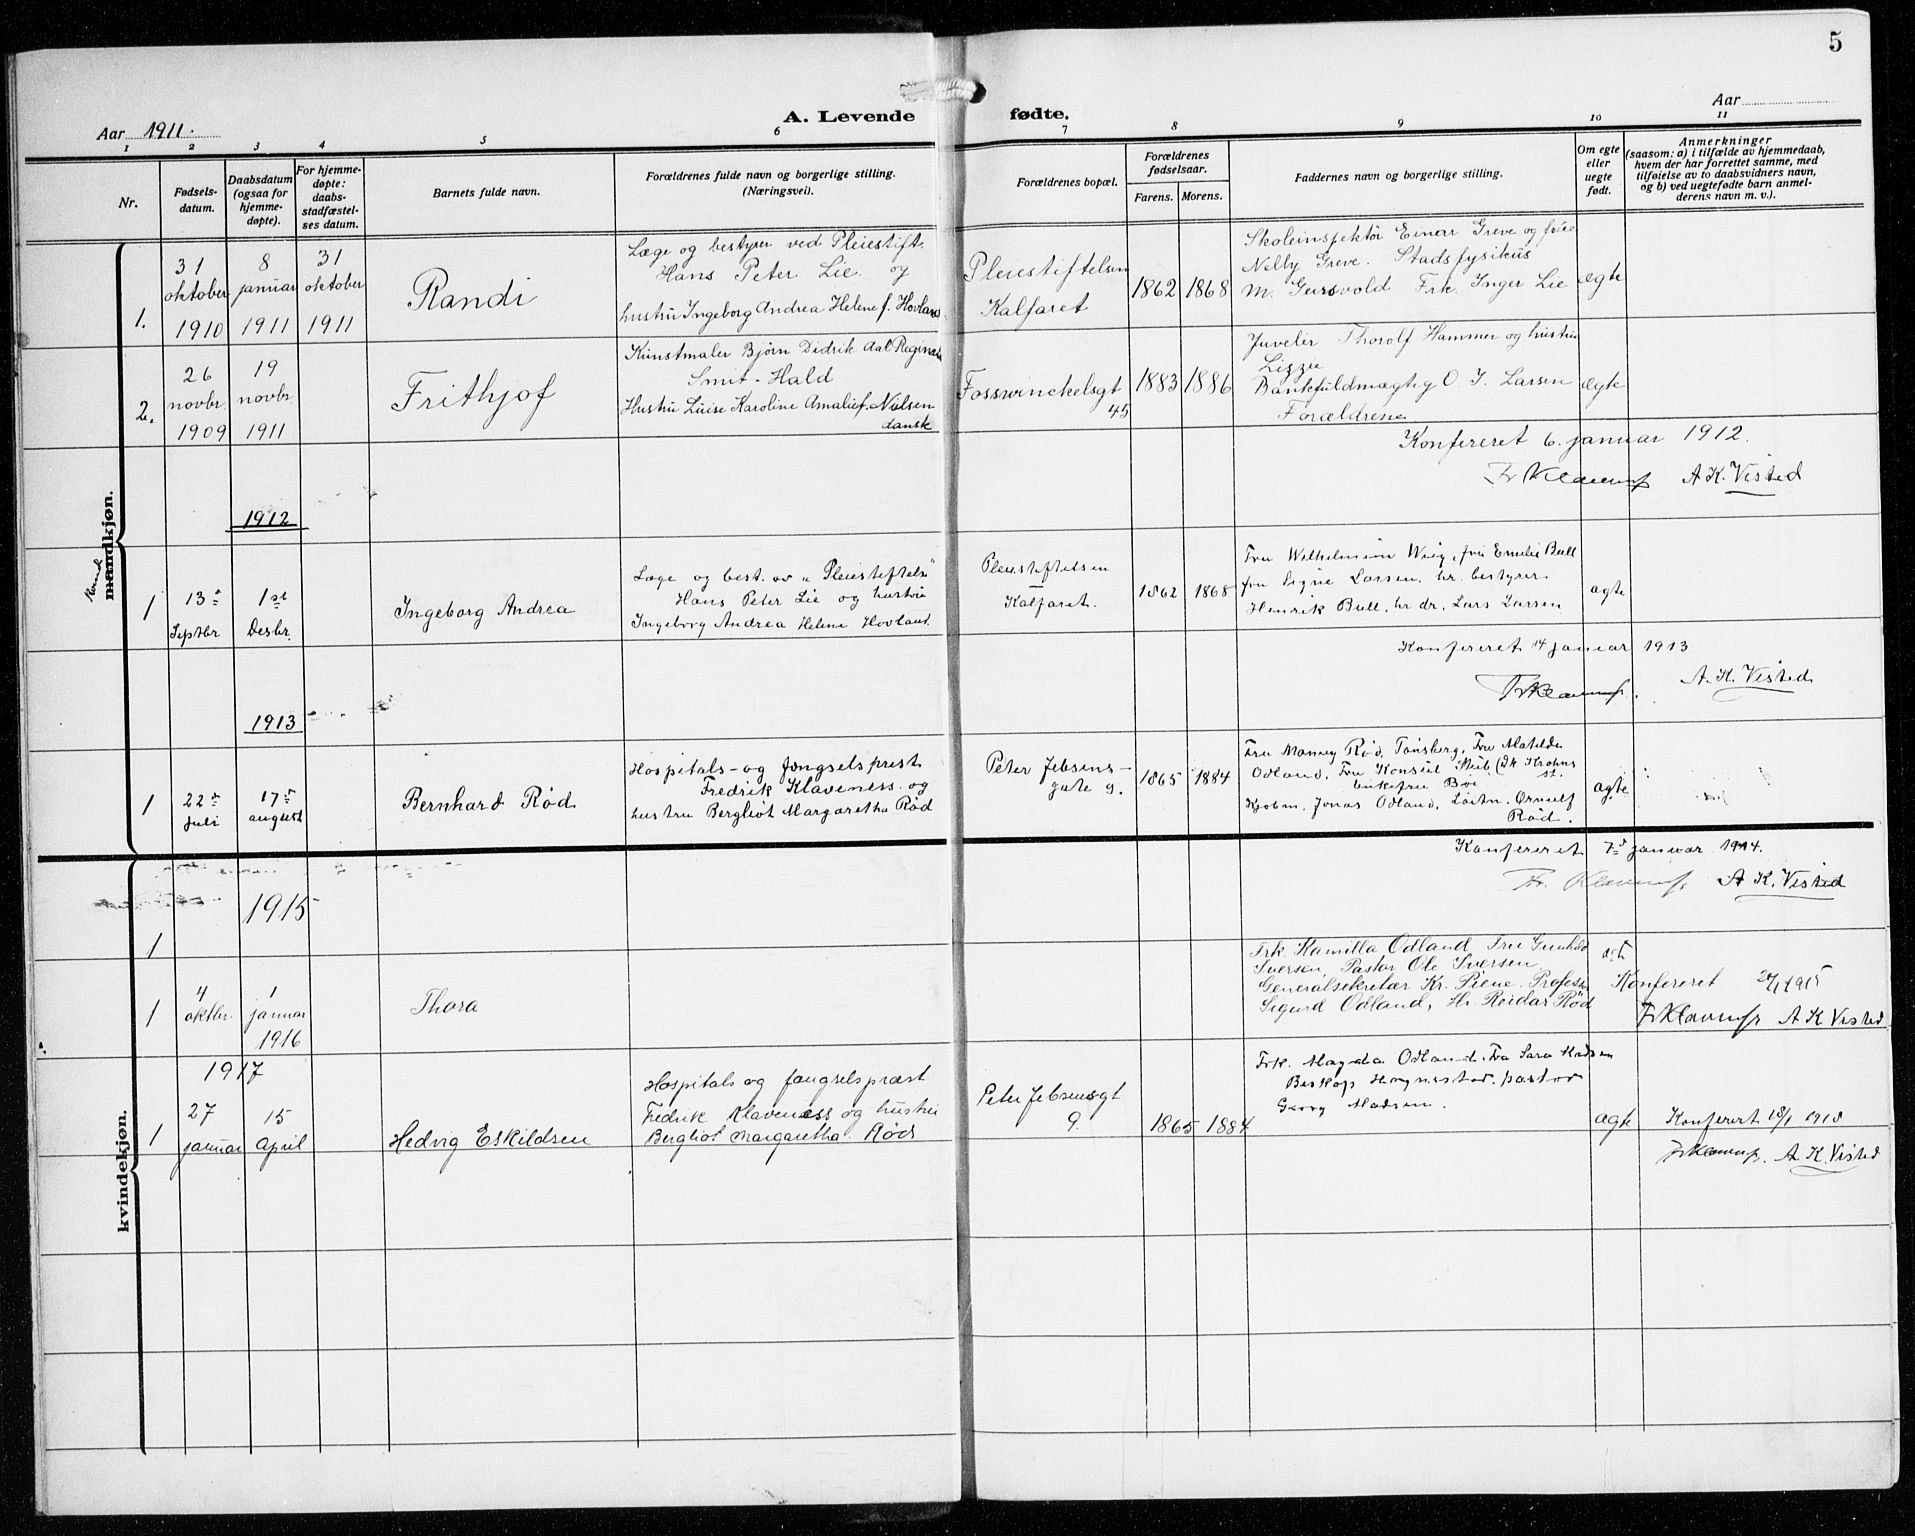 5
Aar 1911.
A. Levende fødte.
Aar
1 2 3 4 5 6 7 8 9 10 11
Nr.
Fødsels-
datum.
Daabsdatum
(ogsaa for
hjemme-
døpte).
For hjemme-
døpte:
daabs-
stadfæstel-
ses datum.
Barnets fulde navn.
Forældrenes fulde navn og borgerlige stilling.
(Næringsvei).
Forældrenes bopæl.
Forældrenes
fødselsaar.
Farens. Morens.
Faddernes navn og borgerlige stilling.
Om egte
eller
uegte
født.
Anmerkninger
(saasom: a) i tilfælde av hjemmedaab,
hvem der har forrettet samme, med
tilføielse av to daabsvidners navn,
og b) ved uegtefødte barn anmel-
derens navn m. v.).
mandkjøn.
1.
31
oktober
1910
8
januar
1911
31
oktober
1911
Randi
Læge og bestyrer ved Pleiestift.
Hans Peter Lie og
hustru Ingeborg Andrea Helene f. Hovland
Pleiestiftelsen
Kalfaret
1862 1868
Skoleinspektör Einar Greve og frue
Nelly Greve. Stadsfysikus
M. Frk. Inger Lie
ægte
2.
26
novbr
1909
19
novbr
1911
Frithjof
Kunstmaler Bjørn Didrik Aal Reginald
Smit-Hald
Hustru Luise Karoline Amalie f. Nielsen
dansk
Fosswinckelsgt
45
1883 1886
Juveler Thorolf Hammer og hustru
Lizzie
Bankfuldmægtig O. J. Larsen
Forældrene
ægte
Konfereret 6. januar 1912.
Fr Klaveness A. K. Visted
1912
1
13de
Septbr
1st
Desbr.
Ingeborg Andrea
Læge og best. av „Pleiestiftels"
Hans Peter Lie og hustru
Ingeborg Andrea Helene Hovland.
Pleiestiftelsen
Kalfaret.
1862 1868
Fru Wilhelmine Wiig, fru Emilie Bull
fru Signe Larsen, hr. bestyrer
Henrik Bull, hr dr. Lars Larsen
ægte
Konfereret 14 januar 1913
Fr Klaveness. A. K. Visted
1913
1
22de
juli
17de
august
Bernhard Rød
Hospitals- og fængselsprest
Fredrik Klaveness og
hustru Bergliot Margaretha Rød
Peter Jebsens-
gate 9.
1865 1884
Fru Rød, Tønsberg, Fru Matilde
Odland, Fru Konsul
Enkefru Bøe
Kjøbm. Jonas Odland, Løitn. Ørnulf
Rød.
ægte
Konfereret 7de januar 1914.
Fr. Klaveness A K. Visted
kvindekjøn.
1915
1
1
4
oktbr.
1
januar
1916
Thora
Frk. Kamilla Odland Fru Gunhild
Iversen, Pastor Ole Iversen
Generalsekretær Kr. Piene. Profess
Sigurd Odland, Hr. Reidar Rød
ægt
Konfereret 24/1 1915
Fr Klaveness A K Visted
1917
1
27
januar
15
April
Hedvig Eskildsen
Hospitals og fængselspræst
Fredrik Klaveness og hustru
Bergliot Margaretha Rød
Peter Jebsensgt
9.
1865 1884
Frk. Magda Odland. Fru Sara Madsen
Biskop Hognestad. pastor
Georg Madsen.
ægte
Konferert 18/1 1918
Fr Klaveness. A K. Visted